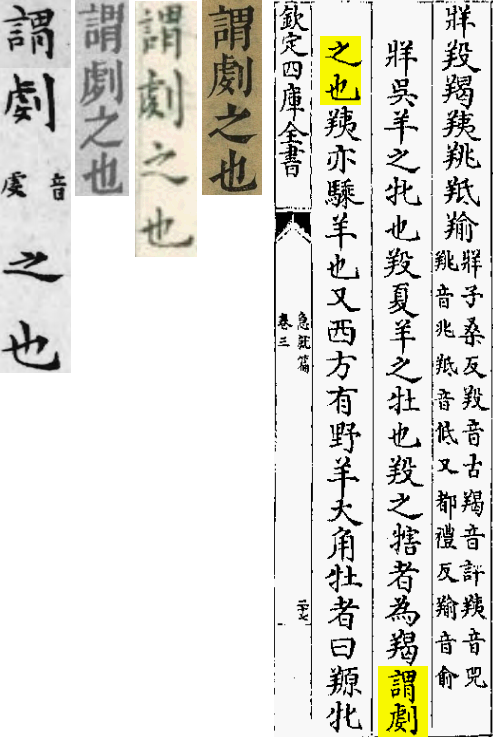 牂羖羯羠䍮羝羭
牂子桑反羖音古羯音訐羠音兕
䍮音兆羝音低又都禮反羭音俞
牂吳羊之牝也羖夏羊之牡也羖之犗者為羯謂劇
之也羠亦騬羊也又西方有野羊大角牡者曰羱牝
欽定四庫全書
急就篇
卷三
二十七
謂劇之也
謂劇之也
謂劇之也
謂劇音虔之也